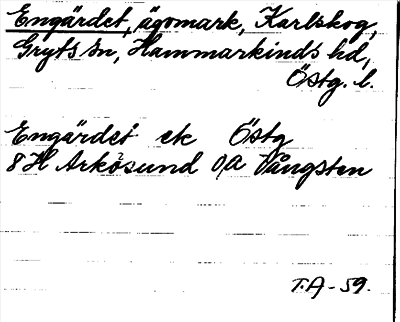 Engärdet, ägomark, Karlskog,
Gryts sn, Hammarkinds hd,
Östg. l.
Engärdet ek Östg
8 H Arkösund o,a Vångsten
T.A-59.